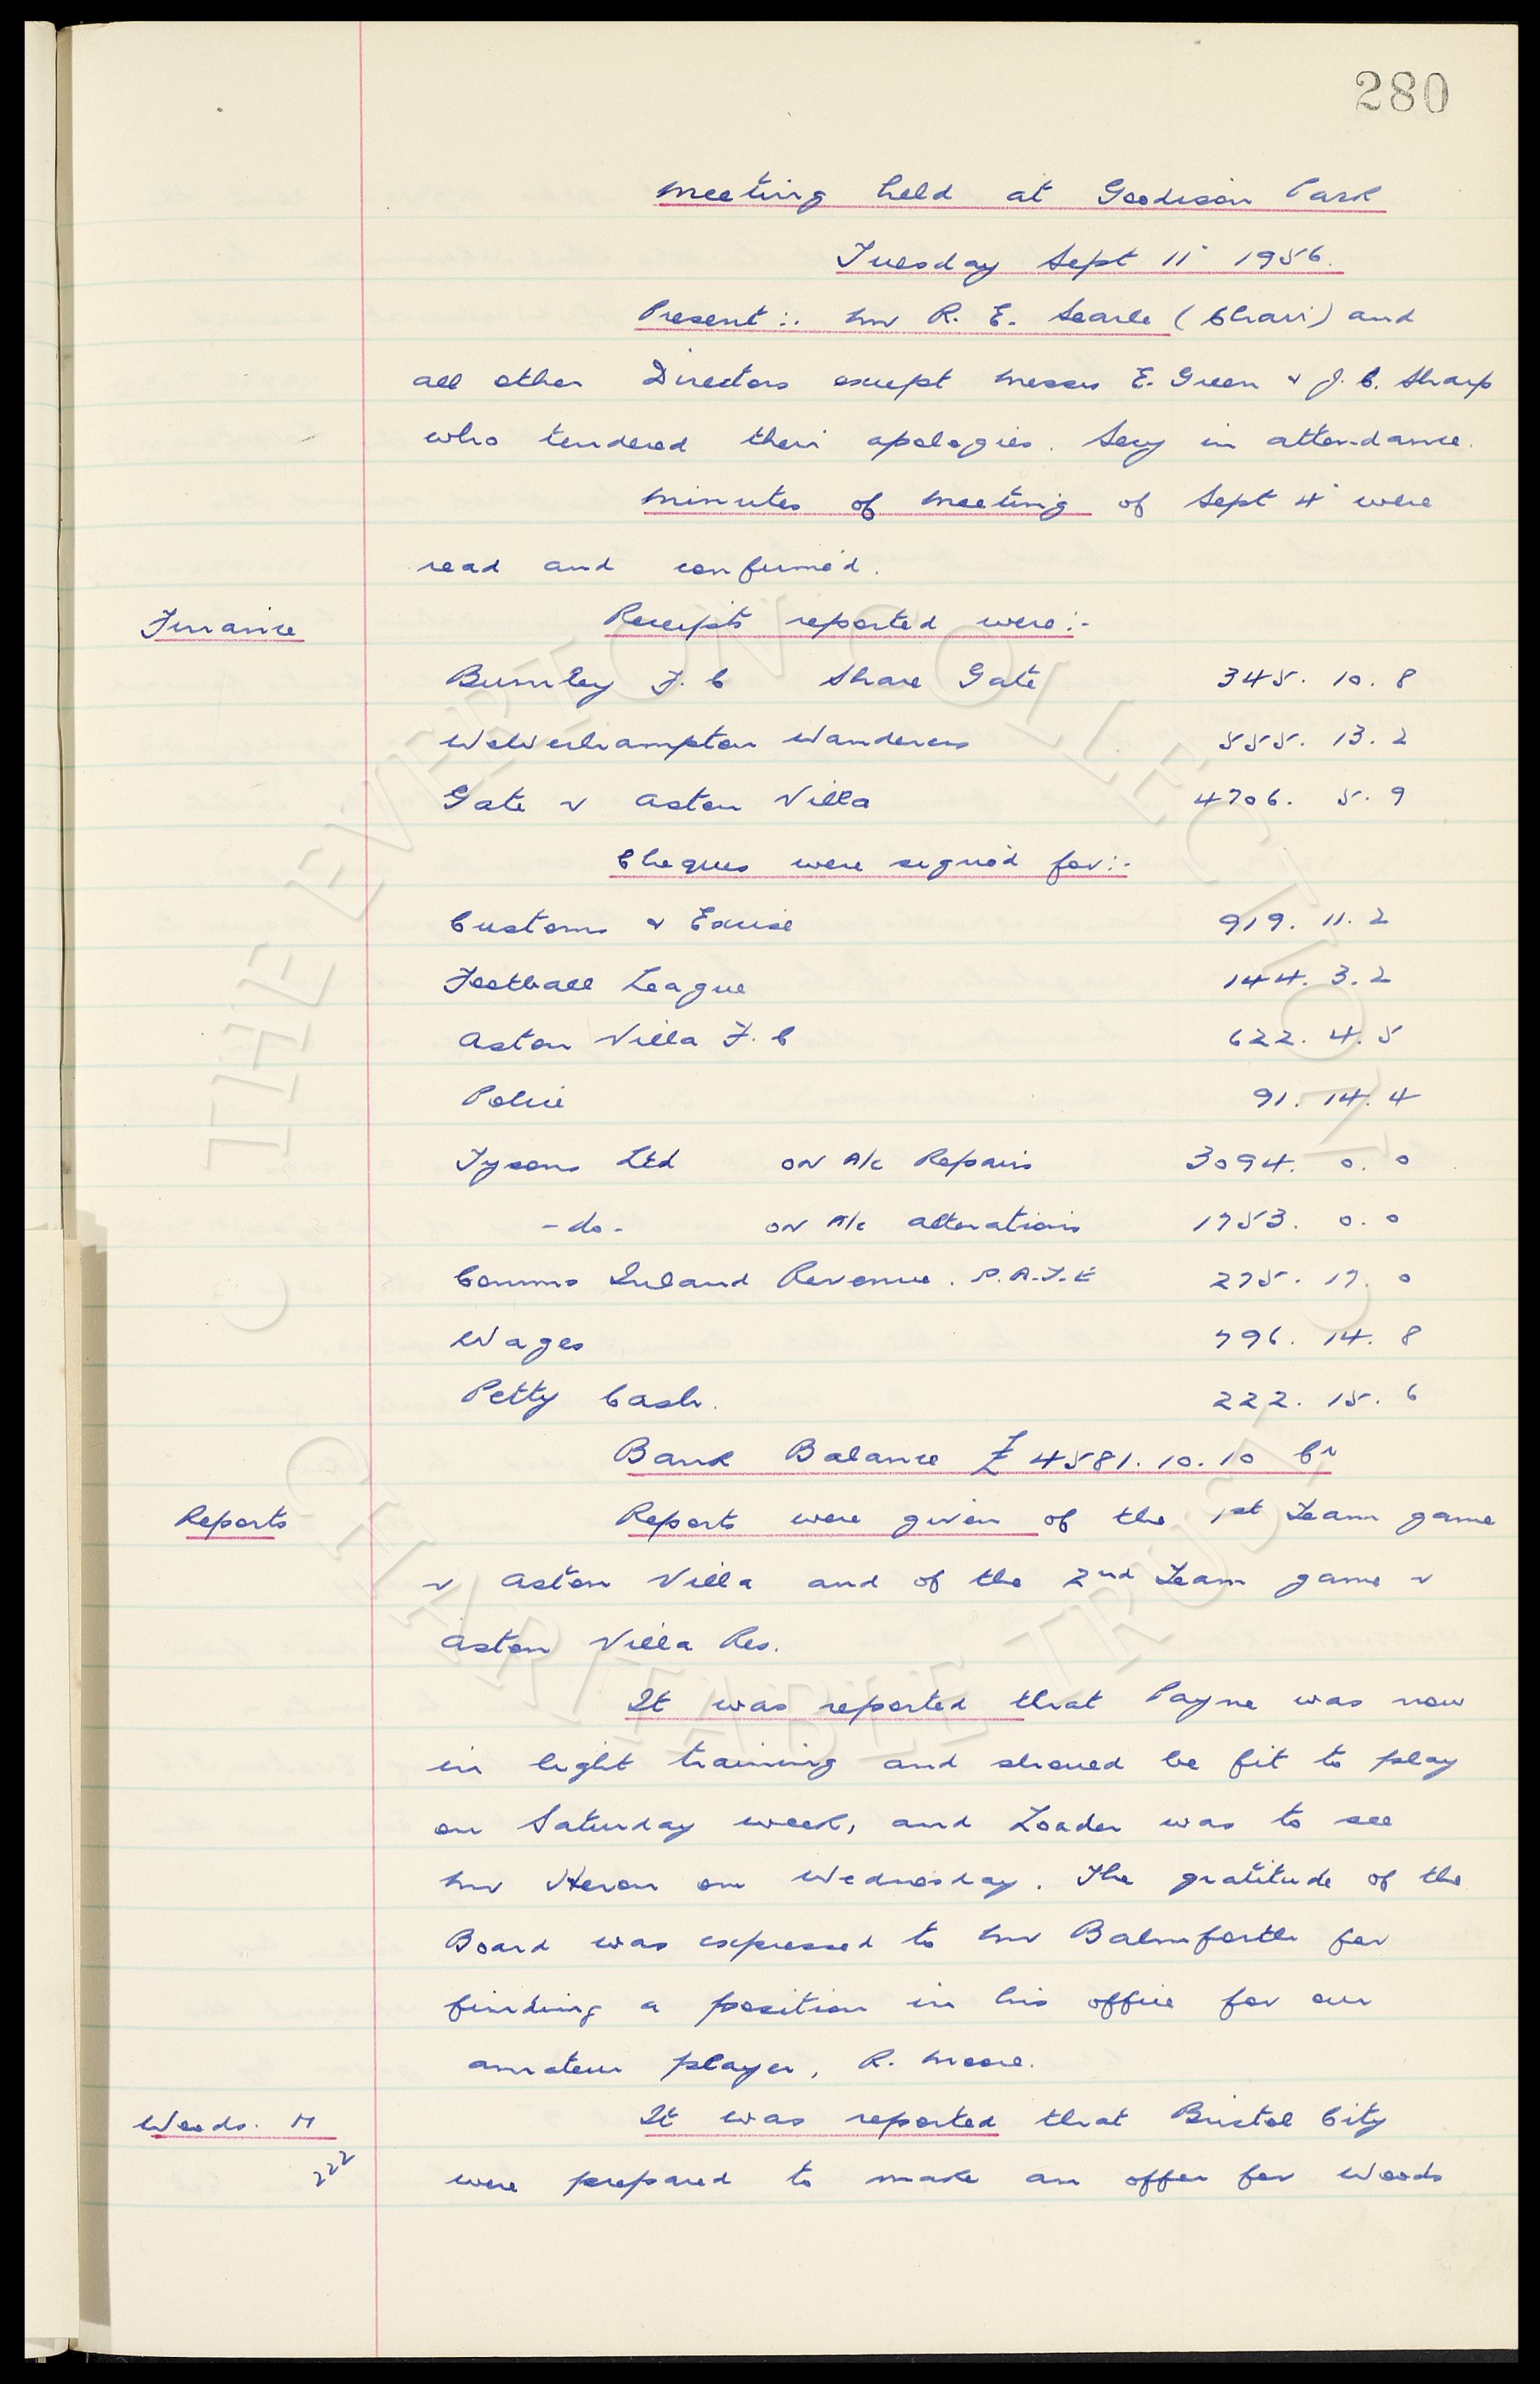 280
Meeting held at Goodison Park
Tuesday Sept 11" 1956.
Present:. Mr R. E. Searle (Chair) and
all other Directors except Messrs E. Green & J. C. Sharp
who tendered their apologies. Secy in attendance.
Minutes of Meeting of Sept 4" were
read and confirmed.
Finance
Receipts reported were:-
Burnley F. C Share Gate 345. 10. 8
Wolverhampton Wanderers 555. 13. 2
Gate v Aston Villa 4706. 5. 9
Cheques were signed for:-
Customs & Excise 919. 11. 2
Football League 144. 3. 2
Aston Villa F. C 622. 4. 5
Police 91. 14. 4
Tysons Ltd on A/c Repairs 3094. 0. 0
-do- on A/c alterations 1753. 0. 0
Comms Inland Revenue. P.A.Y.E 275. 17. 0
Wages 796. 14. 8
Petty Cash. 222. 15. 6
Bank Balance £ 4581. 10. 10 Cr
Reports
Reports were given of the 1st Team game
v Aston Villa and of the 2nd Team game v
Aston Villa Res.
It was reported that Payne was now
in light training and should be fit to play
on Saturday week, and Loader was to see
Mr Heron on Wednesday. The gratitude of the
Board was expressed to Mr Balmforth for
finding a position in his office for our
amateur player, R. Moore.
Woods. M
222
It was reported that Bristol City
were prepared to make an offer for Woods
© THE EVERTON COLLECTION
CHARITABLE TRUST